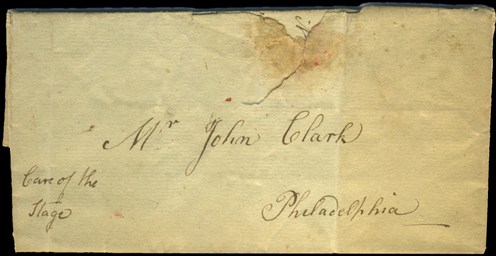 Mr John Clark
Care of the
Stage
Philadelphia